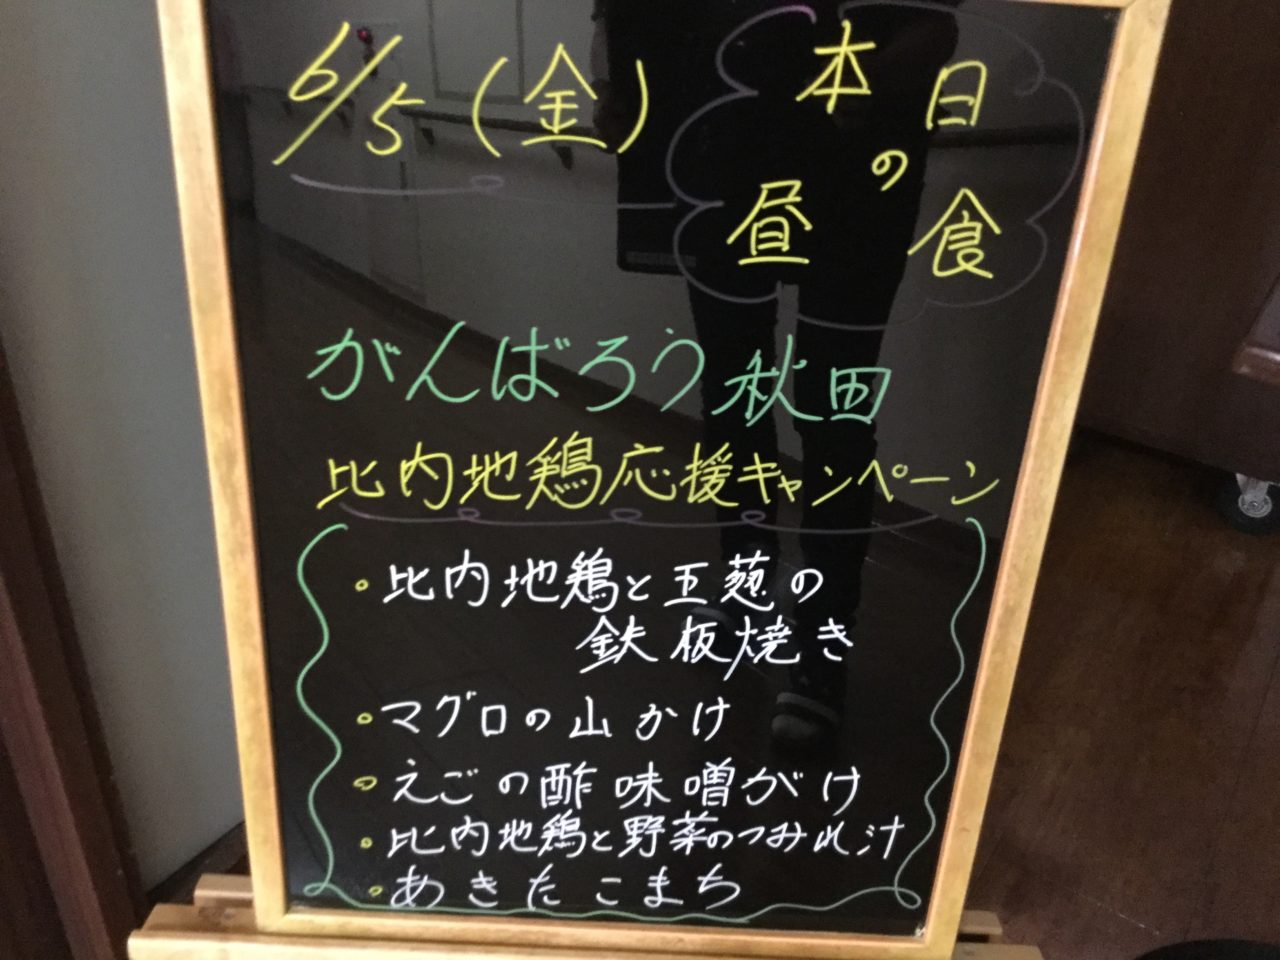 6/5(金)
本日
の
昼食
がんばろう秋田
比内地鶏応援キャンペーン
・比内地鶏と玉葱の
鉄板焼き
・マグロの山かけ
・えごの酢味噌がけ
・比内地鶏と野菜のつみれ汁
・あきたこまち